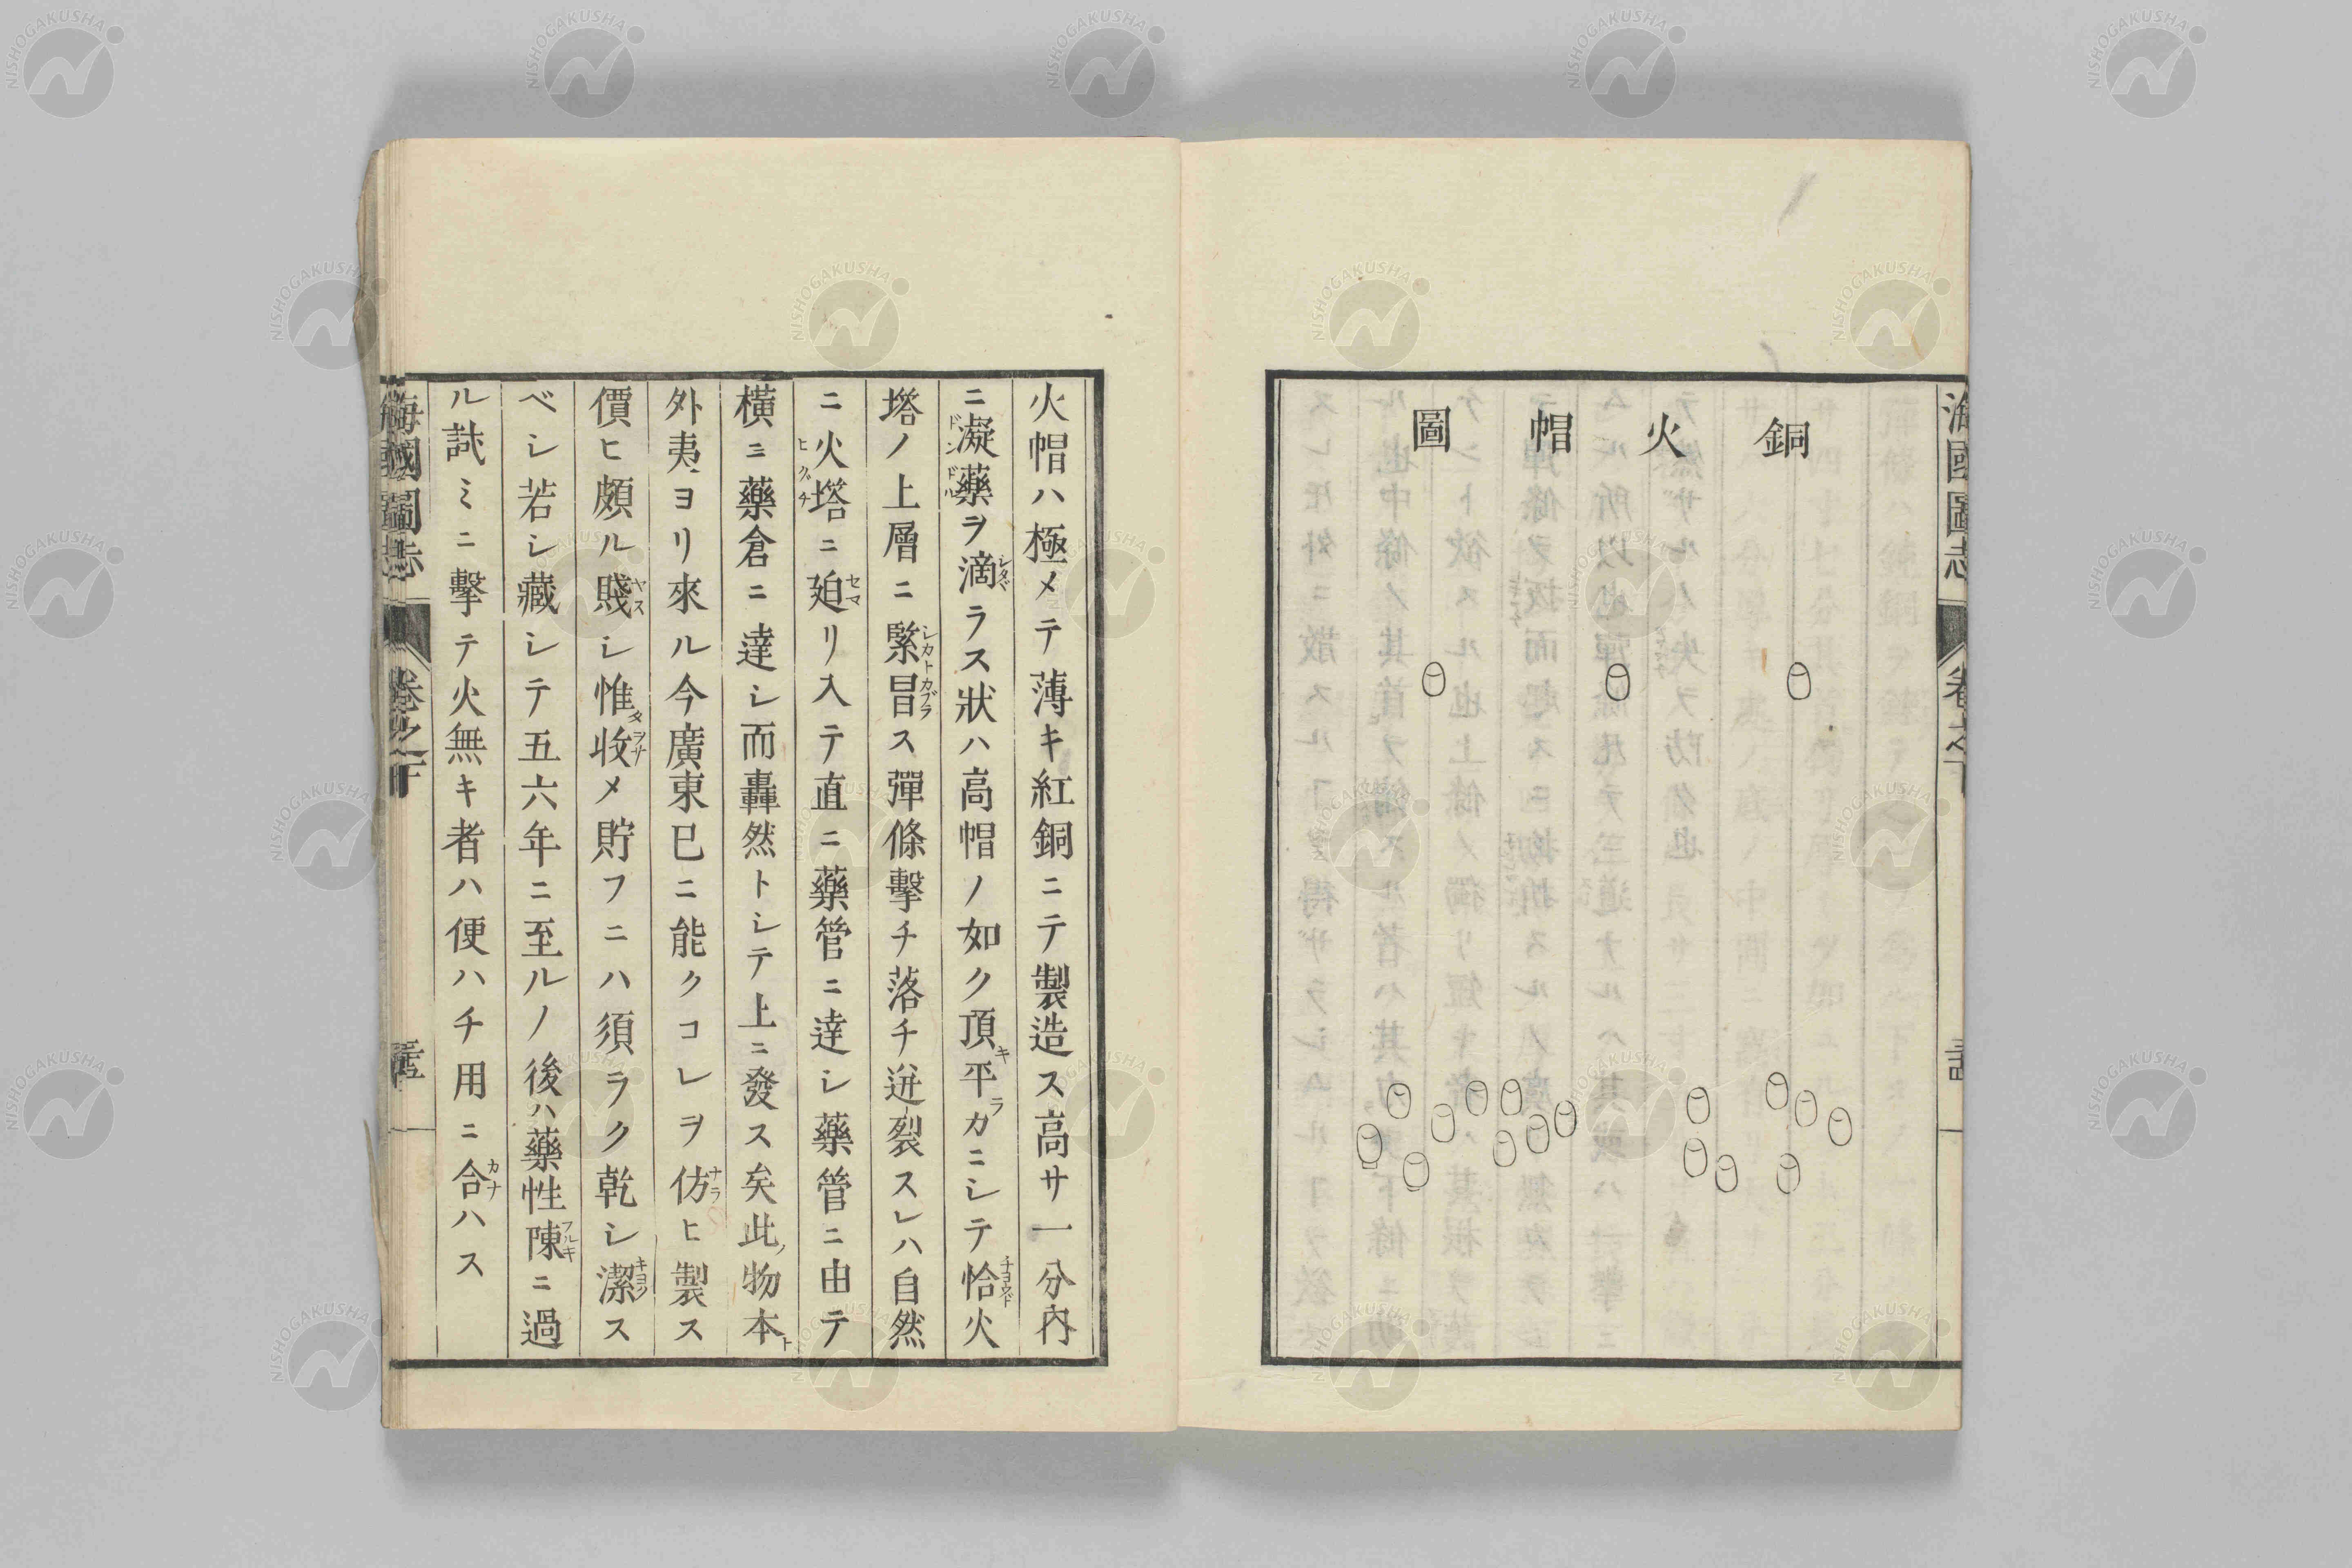 銅火帽圖
海國圖志
火帽ハ極メテ薄キ紅銅ニテ製造ス高サ一分内
ニ凝藥ヲ滴ラス狀ハ高帽ノ如ク頂平カニシテ恰火
塔ノ上層ニ緊冒ス彈條擊チ落チ迸裂スレハ自然
ニ火塔ニ廹リ入テ直ニ藥管ニ達シ藥管ニ由テ
橫ニ藥倉ニ達シ而轟然トシテ上ニ發ス矣此物本
外夷ヨリ來ル今廣東已ニ能クコレヲ仿ヒ製ス
價ヒ頗ル賤シ惟收メ貯フニハ須ラク乾シ潔ス
ベシ若シ藏シテ五六年ニ至ルノ後ハ藥性陳ニ過
ル試ミニ擊テ火無キ者ハ便ハチ用ニ合ハス
海國圖志
NISHOGAKUSHA